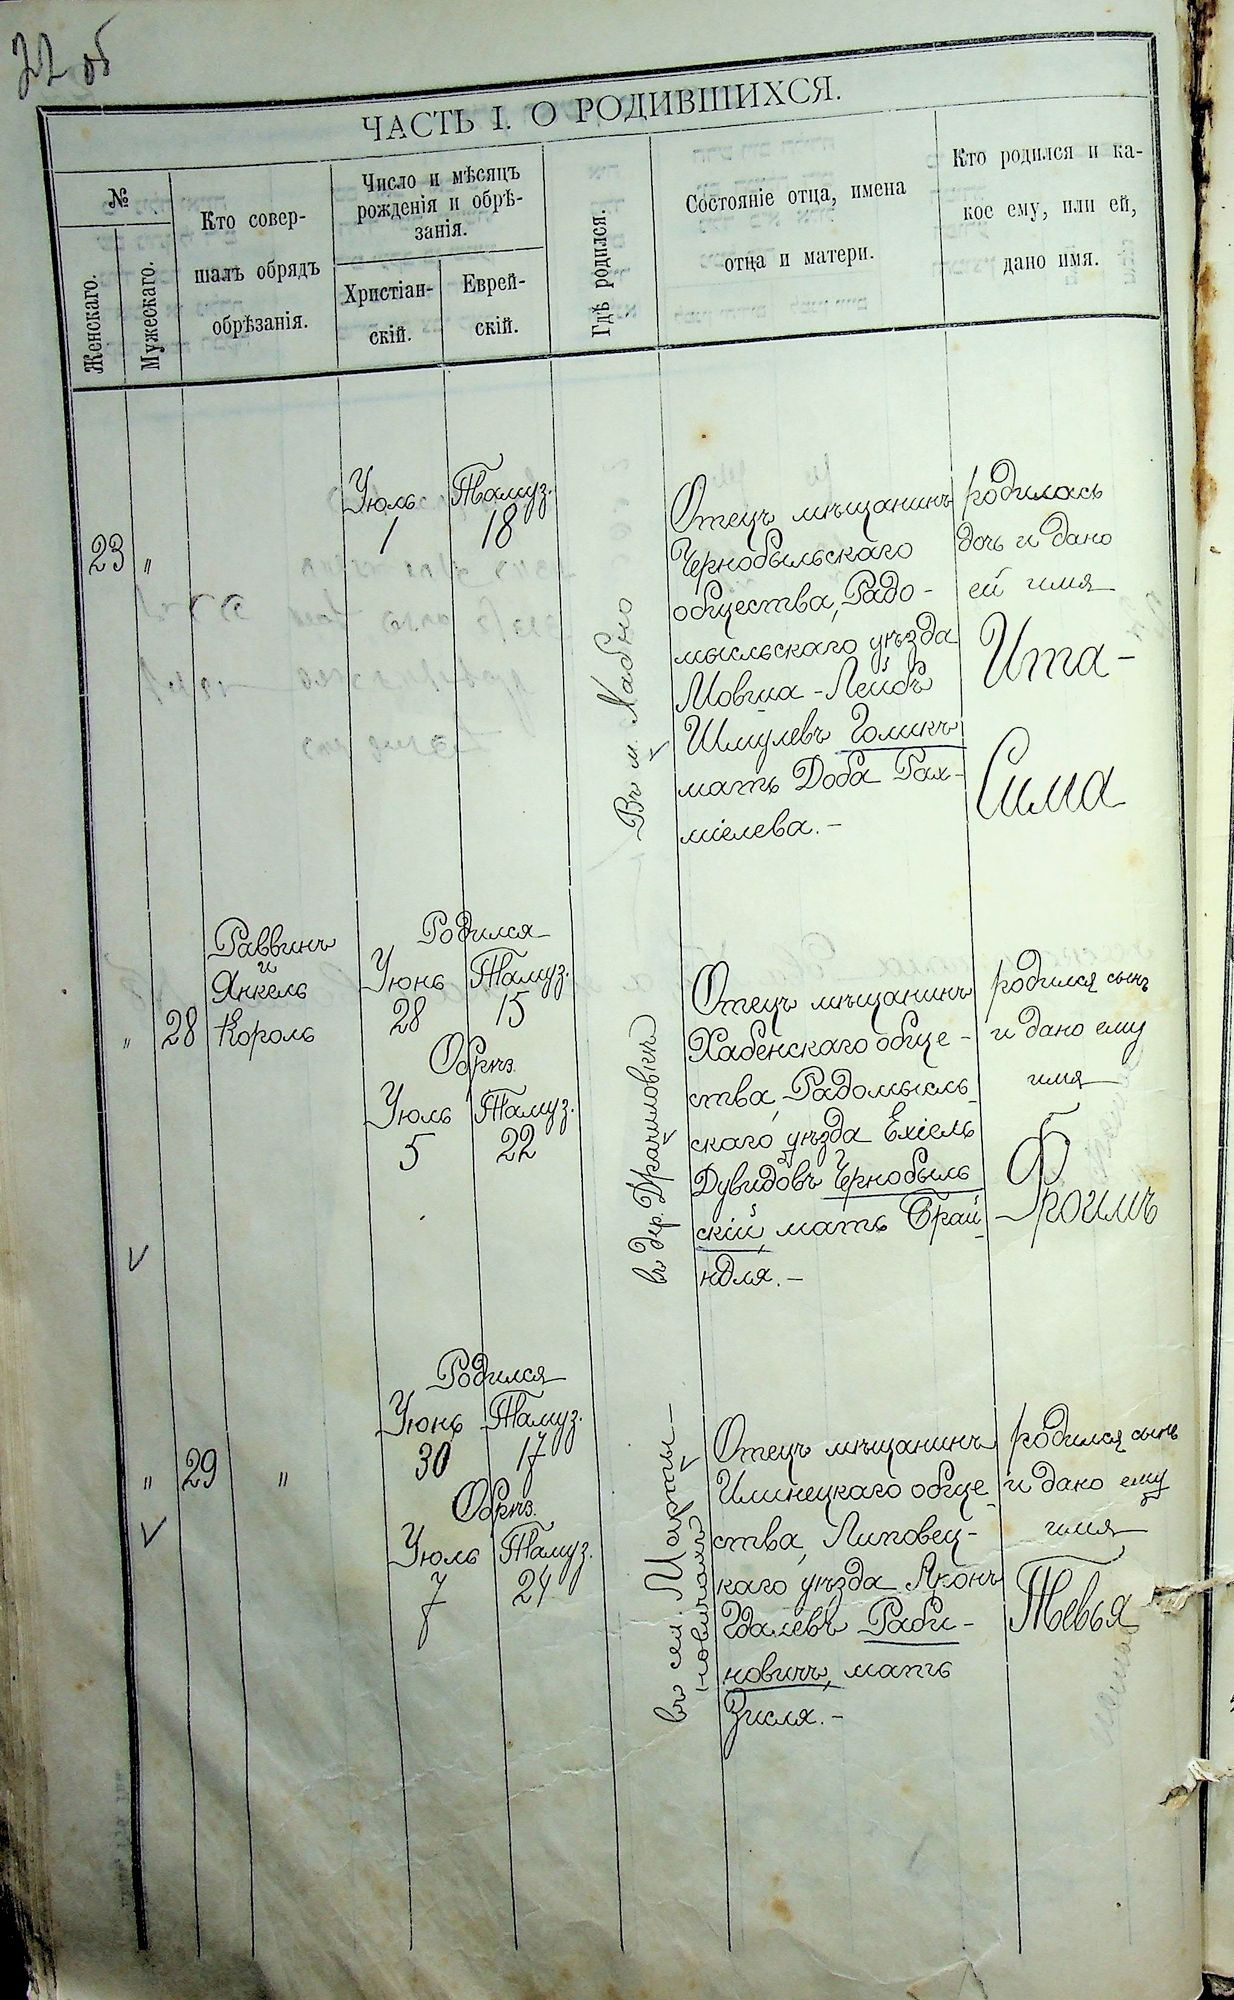 22 об
ЧАСТЬ I. О РОДИВШИХСЯ.
№
Женскаго.
Мужескаго.
Кто совер-
шалъ обрядъ
обрѣзанія.
Число и мѣсяцъ
рожденія и обрѣ-
занія.
Христіан-
скій.
Еврей-
скій.
Гдѣ родился.
Состояніе отца, имена
отца и матери.
Кто родился и ка-
кое ему, или ей,
дано имя.
23 "
Іюль
1
Тамуз.
18
Въ м. Хабно
Отецъ мѣщанинъ
Чернобыльскаго
общества, Радо-
мысльскаго уѣзда
Мовша-Лейбъ
Шмулевъ Голикъ
мать Доба Рах-
міелева.-
родилась
дочь и дано
ей имя
Ита-
Сима
" 28
Раввинъ
и
Янкель
Король
Родился
Іюнь
28
Тамуз.
15
Обрѣз.
Іюль
5
Тамуз.
22
въ дер.
Отецъ мѣщанинъ
Хабенскаго обще-
ства, Радомысль-
скаго уѣзда Ехіель
Дувидовъ Чернобыль
скій, мать Брай-
ндля.-
родился сынъ
и дано ему
имя
Фроимъ
" 29 "
Родился
Іюнь
30
Тамуз.
17
Обрѣз.
Іюль
7
Тамуз.
24
въ сел. Марты-
новичахъ
Отецъ мѣщанинъ
Илинецкаго обще-
ства, Липовец-
каго уѣзда Аронъ
Гдалевъ Раби-
новичъ, мать
Зисля.-
родился сынъ
и дано ему
имя
Тевья